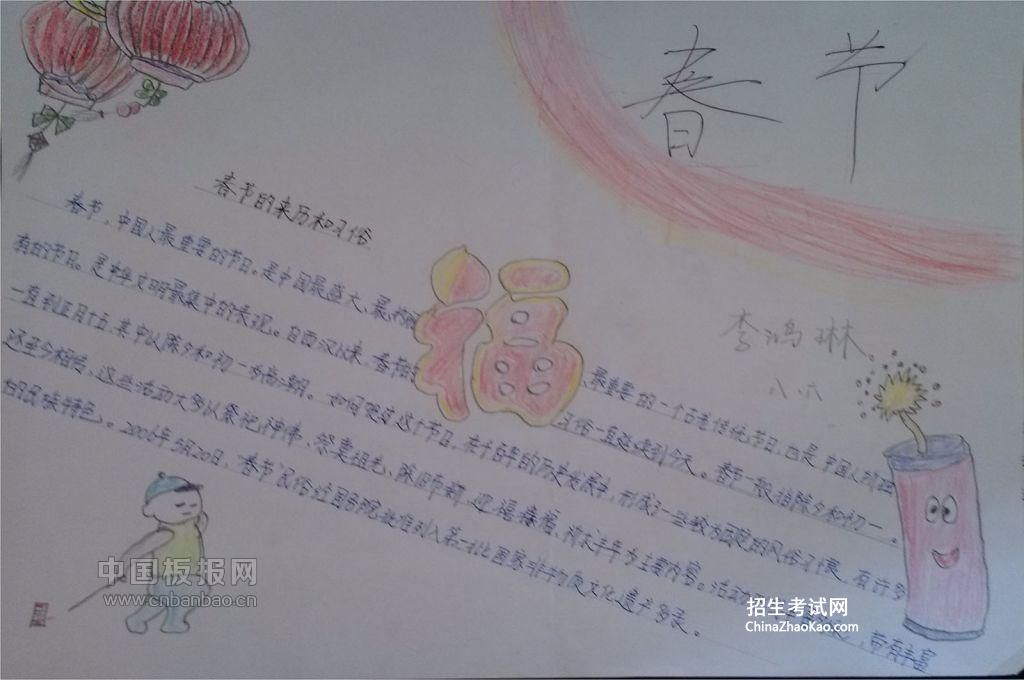 春节
春节的来历和习俗
春节,中国人最重要的节日。是中国最盛大、最热闹、最重要的一个古老传统节日,也是中国人所独
有的节日。是中华文明最集中的表现。自西汉以来,春节的习俗一直延续到今天。春节一般指除夕和初一。
一直到正月十五,其中以除夕和初一为高潮。如何庆这个节日,在千百年的历史发展中,形成了一些较为固定的风俗习惯,有许多
还至今相传,这些活动大多以祭祀神佛、祭奠祖先、除旧布新、迎禧接福、祈求丰年为主要内容。活动 带有丰富
的民族特色。2006年5月20日,春节民俗经国务院批准列入第一批国家非物质文化遗产名录。
福
李鸿琳
八.六
中国板报网
www.cnbanbao.cn
招生考试网
ChinaZhaoKao.com